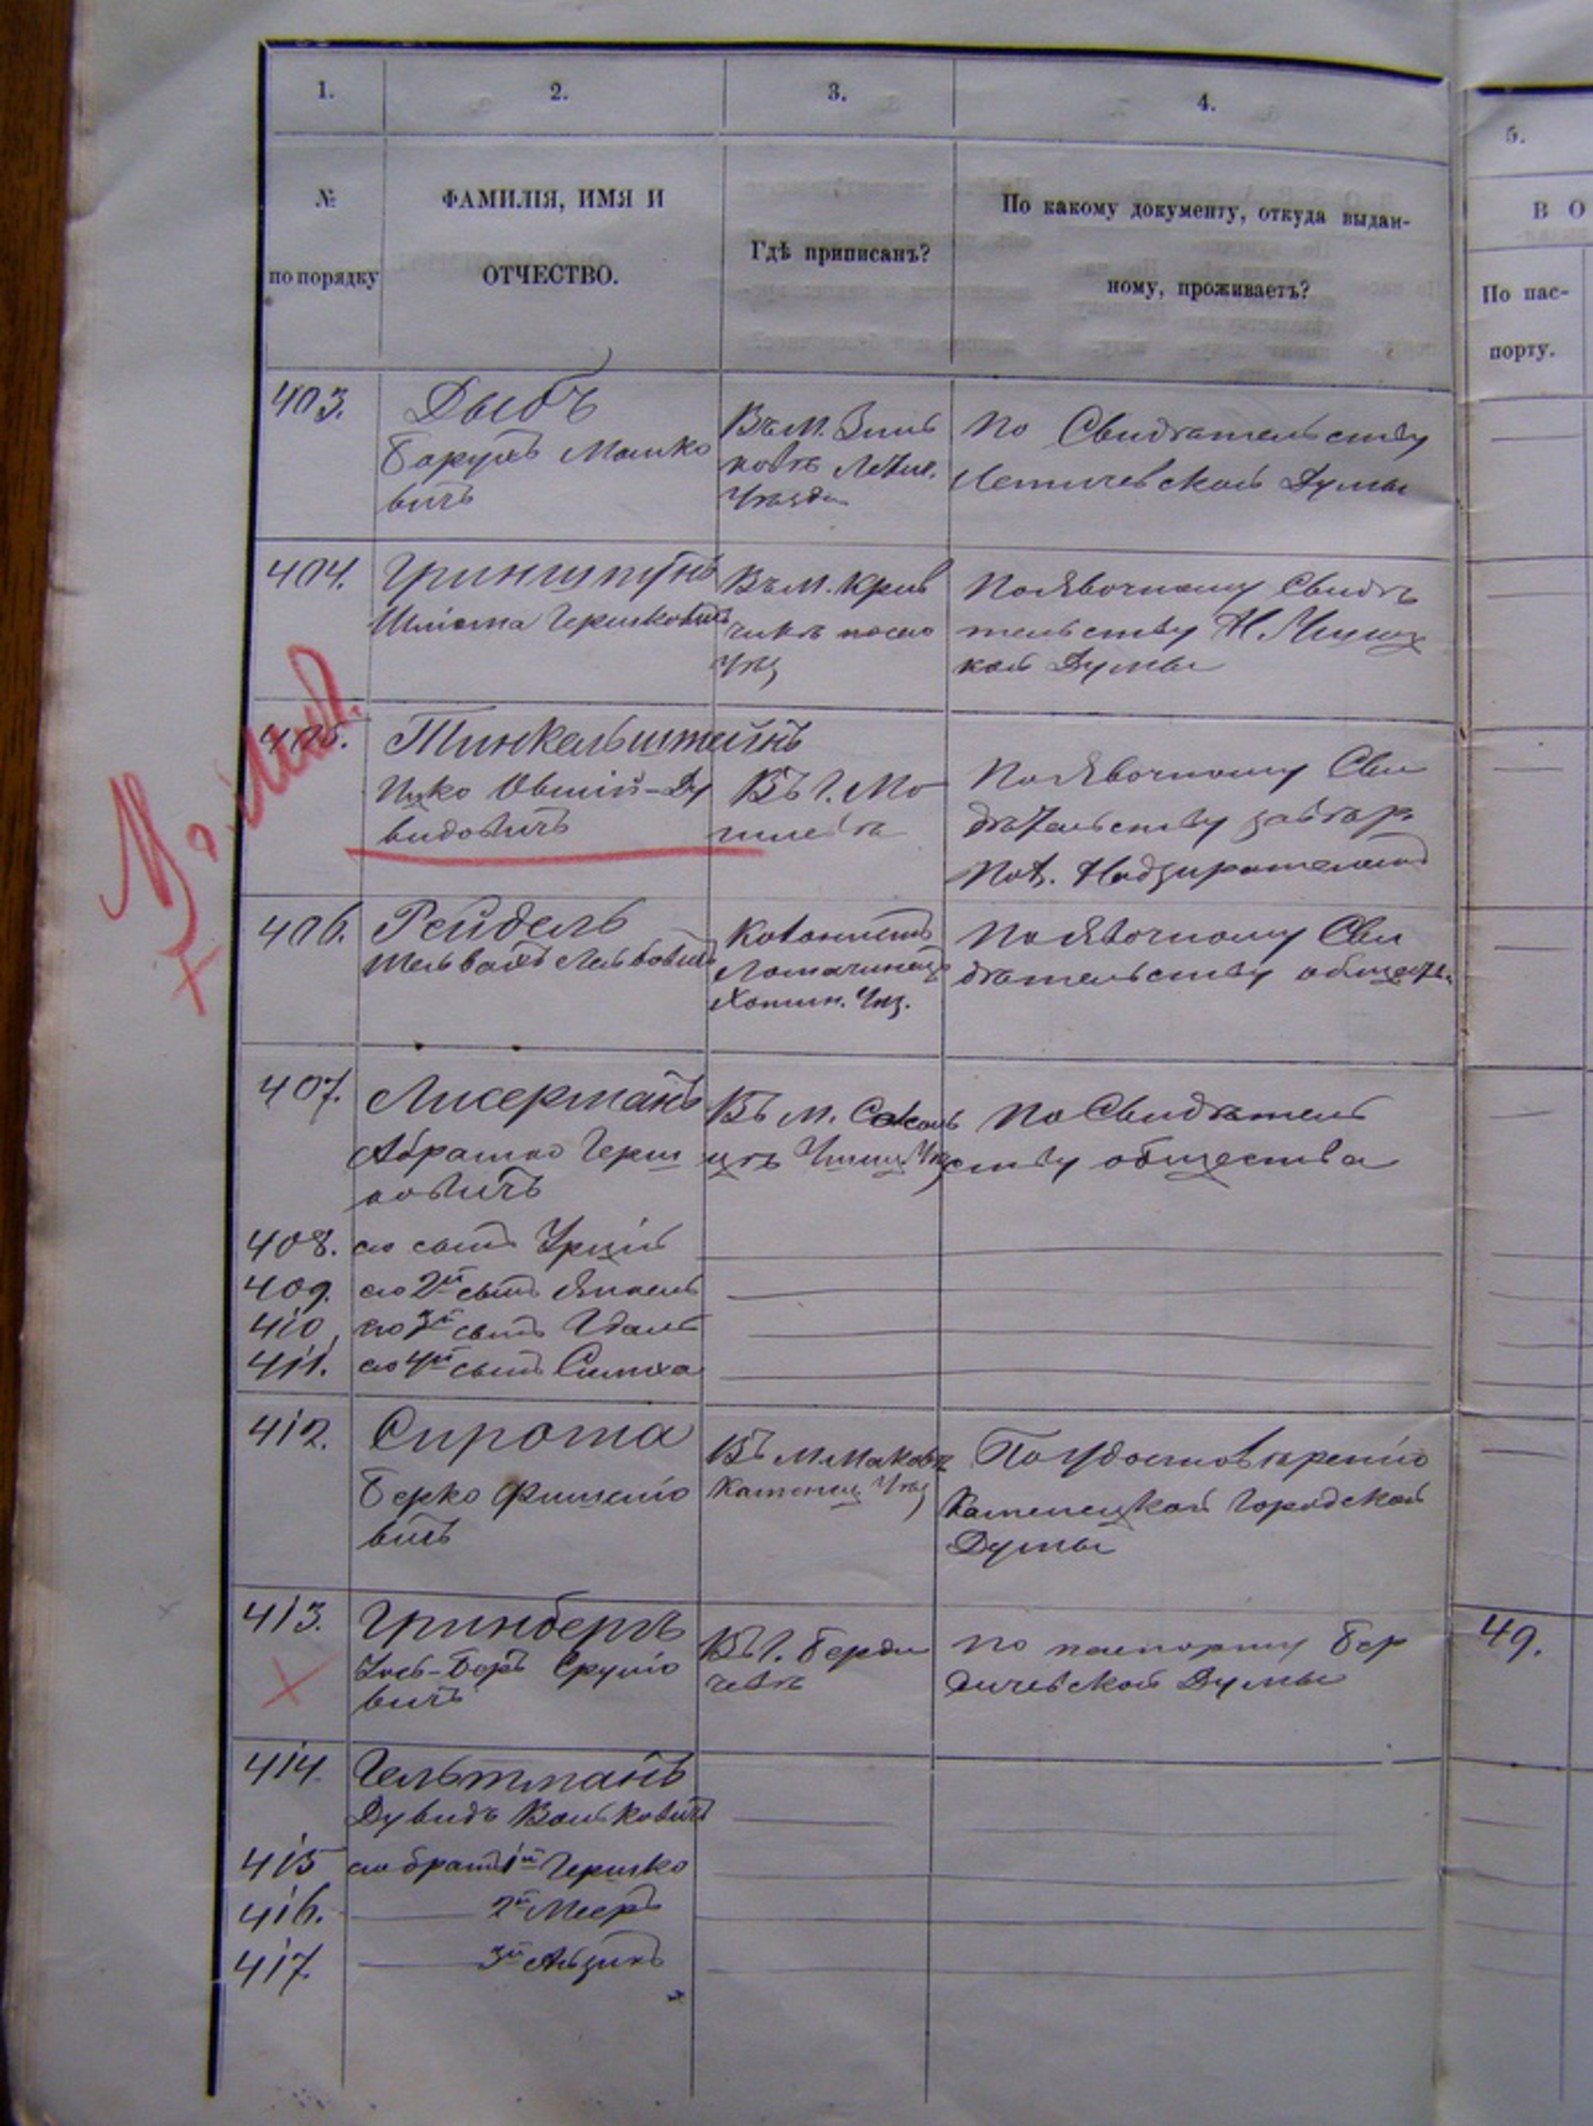 1.
2.
3.
4.
5.
№
по порядку
ФАМИЛІЯ, ИМЯ И
ОТЧЕСТВО.
Гдѣ приписанъ?
По какому документу, откуда выдан-
ному, проживаетъ?
В О
По пас-
порту.
403.
Дыбъ
Борухъ Мошко
вичъ
Въ М. Зинь
ковѣ Летич.
Уѣзда
По Свидѣтельству
Летичевской Думы
404.
Гриншпунъ
Шлiома Гершковичъ
Въ М. Крив
чикѣ
Уѣз
По явочному Свидѣ
тельству Н. Ушиц
кой Думы
405.
Финкельштейнъ
Ицко Овшiй-Ду
видовичъ
Въ Г. Мо
гилевѣ
По явочному Сви
дѣтельству
Пол. Надзирателемъ
406.
Рейдель
Лейбовичъ
Колонистъ
Хотин. Уѣз.
По явочному Сви
дѣтельству общества
407.
Лисерманъ
Абрамко Герш
ковичъ
Въ М. Соколь
цѣ Ушиц. Уѣз
По Свидѣтель
ству общества
408.
его сынъ Урцiй
409.
его 2й сынъ Янкель
410
его 3й сынъ Гдаль
411.
его 4й сынъ Симха
412.
Сирота
Берко Фишелiо
вичъ
Въ М. Маковѣ
Каменец Уѣз
По Удостовѣренiю
Каменецкой Городской
Думы
413.
Гринбергъ
Срулiо
вичъ
Въ Г. Берди
чевѣ
По паспорту Бер
дичевской Думы
49.
414.
Гельтманъ
Дувидъ Вольковичъ
415
его братъ 1й Гершко
416.
2й Мееръ
417
3й Айзикъ